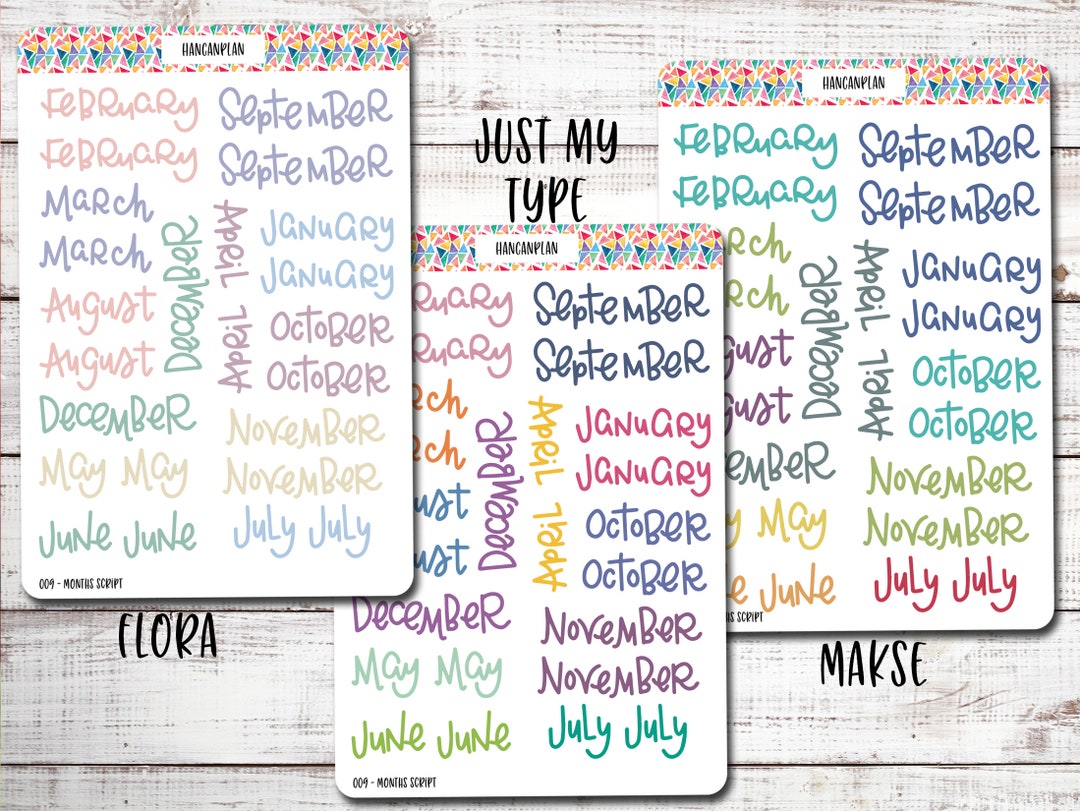 HANGANPLAN
February
September
February
September
March
March
December
April
April
January
January
August
August
October
October
December
November
November
May May
June June
July July
009 - MONTHS SCRIPT
FLORA
JUST MY
TYPE
HANGANPLAN
ruary
September
ruary
September
rch
rch
December
April
April
January
January
ust
ust
October
October
December
November
November
May May
June June
July July
009 - MONTHS SCRIPT
HANGANPLAN
February
September
February
September
rch
rch
December
April
April
January
January
gust
gust
October
October
ember
November
November
y May
e June
July July
THS SCRIPT
MAKSE